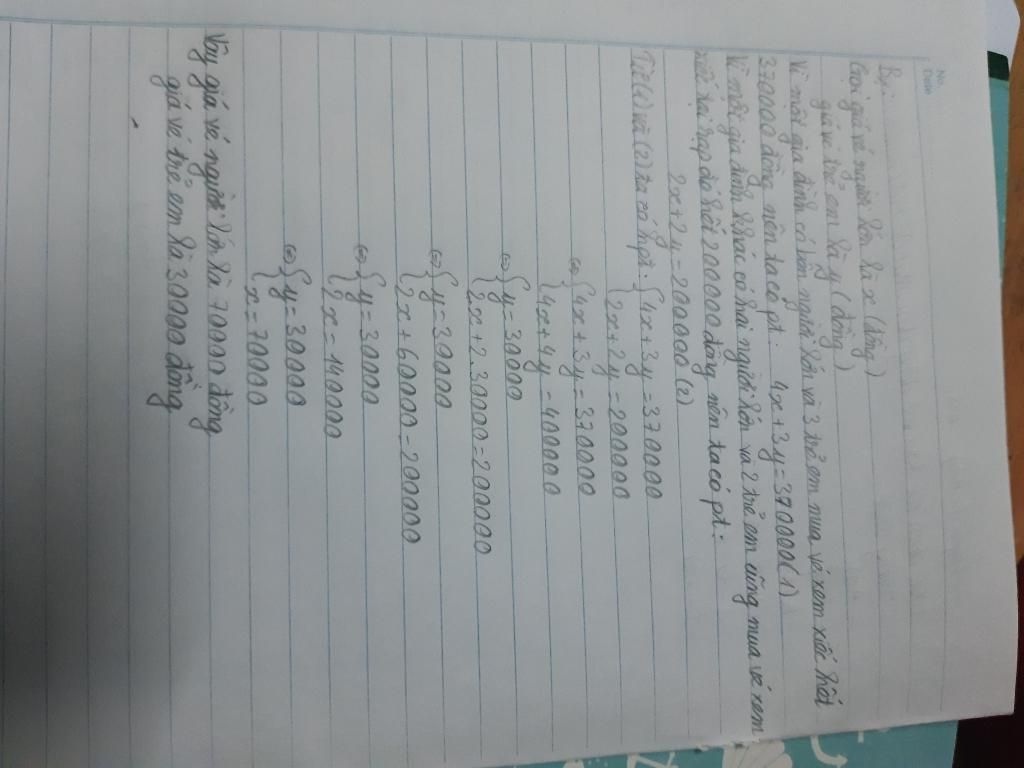 No.
Date
Bài
Gọi giá vé người lớn là x (đồng)
giá vé trẻ em là y (đồng)
Vì một gia đình có bốn người lớn và 3 trẻ em mua vé xem xiếc hết
370000 đồng nên ta có pt: 4x+3y=370000(1)
Vì một gia đình khác có hai người lớn và 2 trẻ em cũng mua vé xem
xiếc tại rạp đó hết 200000 đồng nên ta có pt:
2x+2y=200000(2)
Từ (1) và (2) ta có hpt: { 4x+3y=370000
2x+2y=200000
⇔ { 4x+3y=370000
4x+4y=400000
⇔ { y=30000
2x+2.30000=200000
⇔ { y=30000
2x+60000=200000
⇔ { y=30000
2x=140000
⇔ { y=30000
x=70000
Vậy giá vé người lớn là 70000 đồng
giá vé trẻ em là 30000 đồng